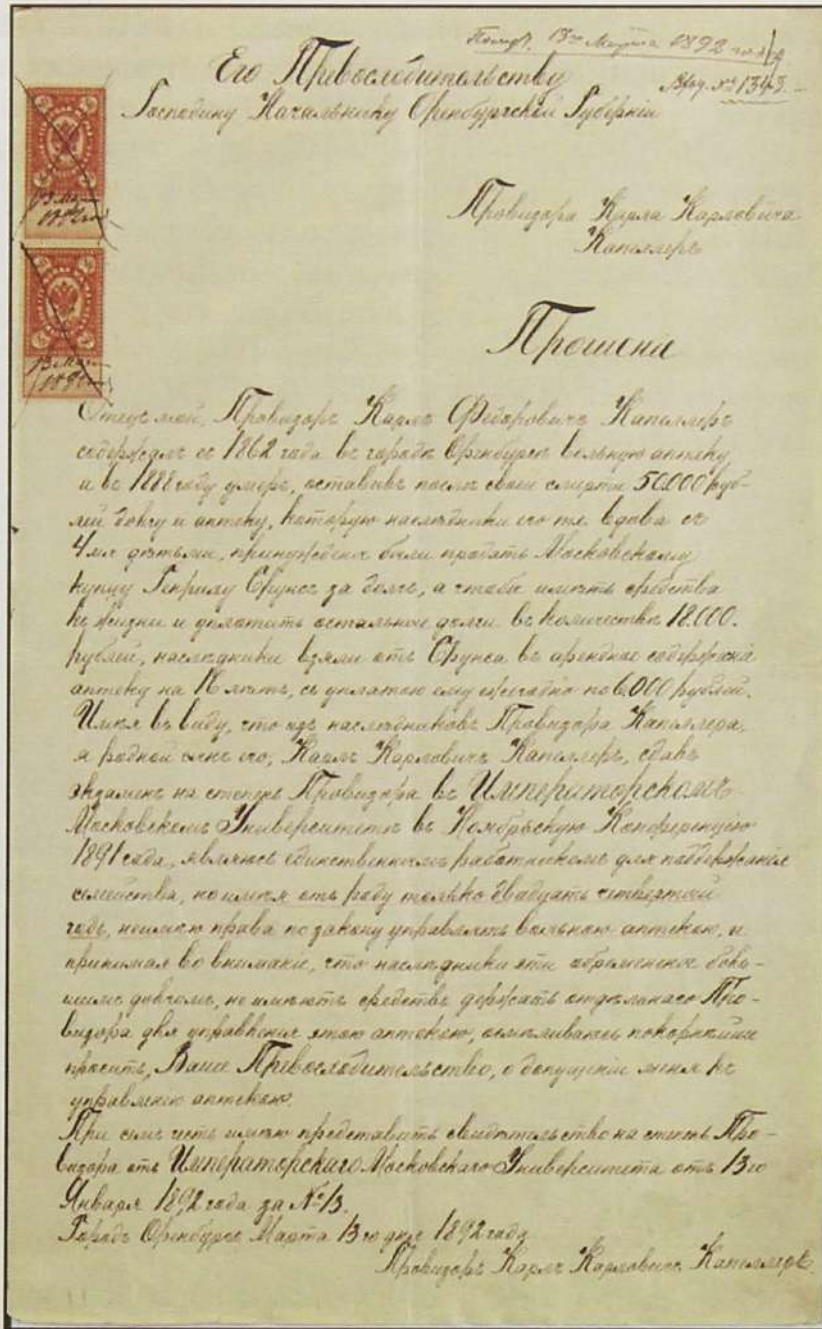 Получ. 13го Марта 1892 года
Вход. № 1343.
Его Превосходительству
Господину Начальнику Оренбургской Губернiи
Провизора Карла Карловича
Капеллеръ
13 Март
1892 год
13 Март
1892 год
Отецъ мой, Провизоръ Карлъ Федоровичъ Капеллеръ
содержалъ съ 1862 года въ городѣ Оренбургѣ вольную аптеку
и въ 1888 году умеръ, оставивъ послѣ своей смерти 50.000 руб-
лей долгу и аптеку, которую наслѣдники его т.е. вдова съ
4мя дѣтьми, принуждены были продать Московскому
купцу Генриху Брунсъ за долгъ, а чтобы имѣть средства
къ жизни и уплатить остальные долги въ количествѣ 18.000.
рублей, наслѣдники взяли отъ Брунса въ арендное содержанiе
аптеку на лѣтъ, съ уплатою ему ежегодно по 6.000 рублей.
Имѣя въ виду, что изъ наслѣдниковъ Провизора Капеллера,
я родной сынъ его, Карлъ Карловичъ Капеллеръ, сдавъ
экзаменъ на степень Провизора въ Императорскомъ
Московскомъ Университетѣ въ Ноябрьскую Конференцiю
1891 года, являюсь единственнымъ работникомъ для поддержанiя
семейства, но имѣя отъ роду только двадцать четвертый
годъ, неимѣю права по закону управлять вольною аптекою, и
принимая во вниманiе, что наслѣдники эти обремененные боль-
шимъ долгомъ, не имѣютъ средствъ держать отдѣльнаго Про-
визора для управленiя этою аптекою, осмѣливаюсь покорнѣйше
просить, Ваше Превосходительство, о допущенiи меня къ
управленiю аптекою.
При семъ честь имѣю представить свидѣтельство на степень Про-
визора отъ Императорскаго Московскаго Университета отъ 13го
Января 1892 года за № 13.
Городъ Оренбургъ Марта 13го дня 1892 года
Провизоръ Карлъ Карловичъ Капеллеръ.